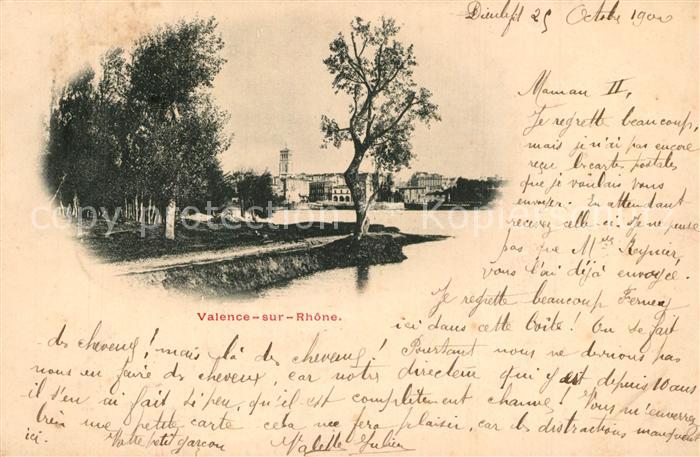 Dieulefit 25 Octobre 1900
Maman II,
Je regrette beaucoup,
mais je n'ai pas encore
reçu les cartes postales
que je voulais vous
envoyer. En attendant
recevez celle-ci. Je ne pense
pas que Mme Reynier
vous l'ai déjà envoyée.
Valence-sur-Rhône.
Je regrette beaucoup Ferney
ici dans cette boîte! On se fait
des cheveux! mais là des cheveux! Pourtant nous ne devrions pas
nous en faire des cheveux, car notre directeur qui y est depuis 10 ans
il s'en ai fait si peu, qu'il est complètement chauve! Vous m'enverrez
bien une petite carte cela me fera plaisir, car les distractions manquent
ici. Votre petit garçon Valette Julien
copyright Kopierschutz